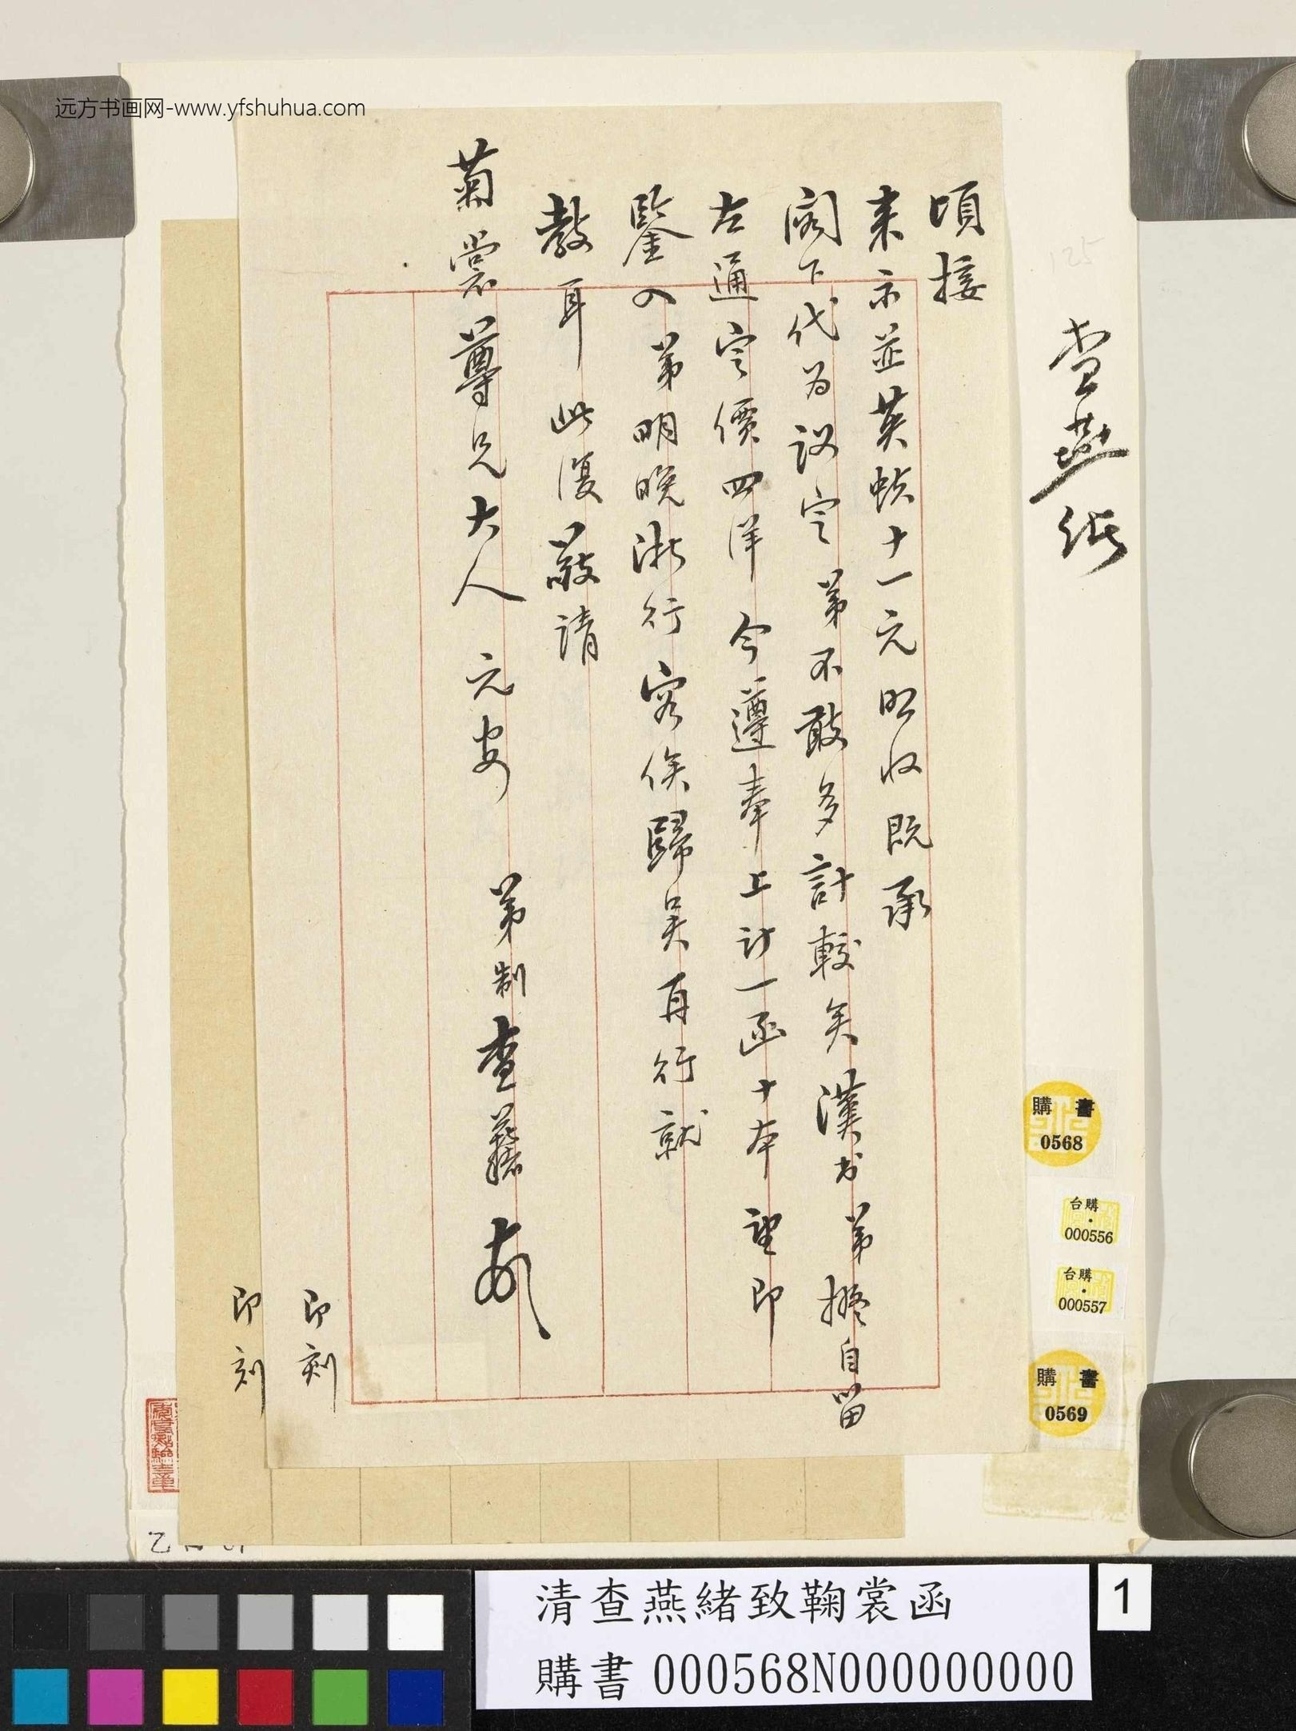 远方书画网-www.yfshuhua.com
125
查燕緒
頃接
來示並英蚨十一元照收既承
閣下代為議定弟不敢多計較矣漢書弟擬自留
左通定價四洋今遵奉上計一函十本望即
鑒入弟明晚浙行容俟歸吳再行就
教耳此復敬請
菊裳尊兄大人元安 弟制查燕緒
即刻
即刻
購書
0568
台購
000556
台購
000557
購書
0569
清查燕緒致鞠裳函
購書 000568N000000000
1